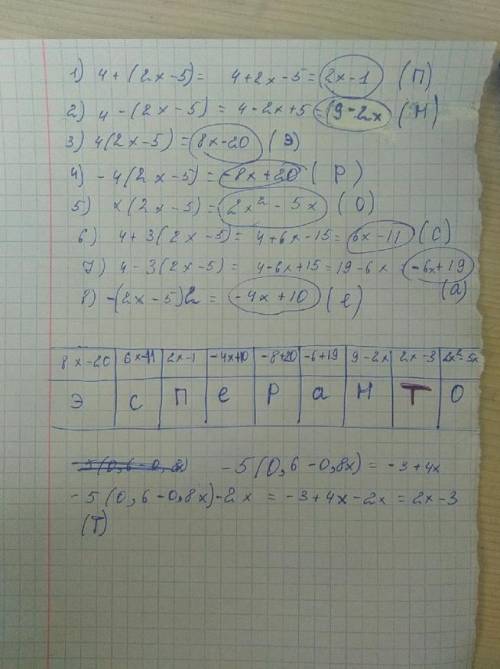 1) 4+(2x-5)= 4+2x-5=2x-1 (П)
2) 4-(2x-5)=4-2x+5=(9-2x (Н)
3) 4(2x-5)=8x-20 (Э)
4) -4(2x-5)=-8x+20 (Р)
5) x(2x-5)=2x²-5x (О)
6) 4+3(2x-5)=4+6x-15=6x-11 (С)
7) 4-3(2x-5)=4-6x+15=19-6x=-6x+19 (а)
8) -(2x-5)2=-4x+10 (е)
8x-20 6x-11 2x-1 -4x+10 -8+20 -6+19 9-2x 2x-3 2x²-5x
Э С П е Р а Н Т О
-5(0,6-0,8x)=-3+4x
-5(0,6-0,8x)-2x=-3+4x-2x=2x-3
(Т)